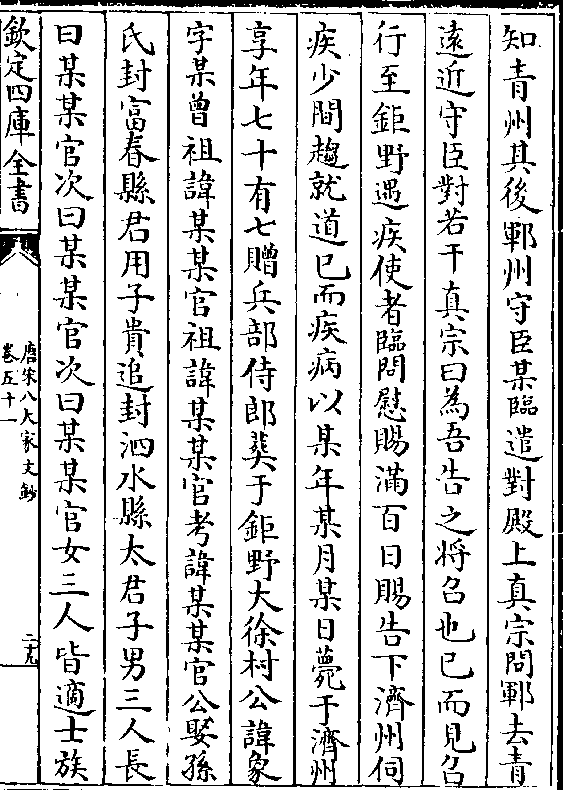 知青州其後鄆州守臣某臨遣對殿上真宗問鄆去青
遠近守臣對若干真宗曰為吾告之將召也已而見召
行至鉅野遇疾使者臨問慰賜滿百日賜告下濟州伺
疾少間趨就道已而疾病以某年某月某日薨于濟州
享年七十有七贈兵部侍郎葬于鉅野大徐村公諱象
字某曾祖諱某某官祖諱某某官考諱某某官公娶孫
氏封富春縣君用子貴追封泗水縣太君子男三人長
曰某某官次曰某某官次曰某某官女三人皆適士族
欽定四庫全書
唐宋八大家文鈔
卷五十一
二十九